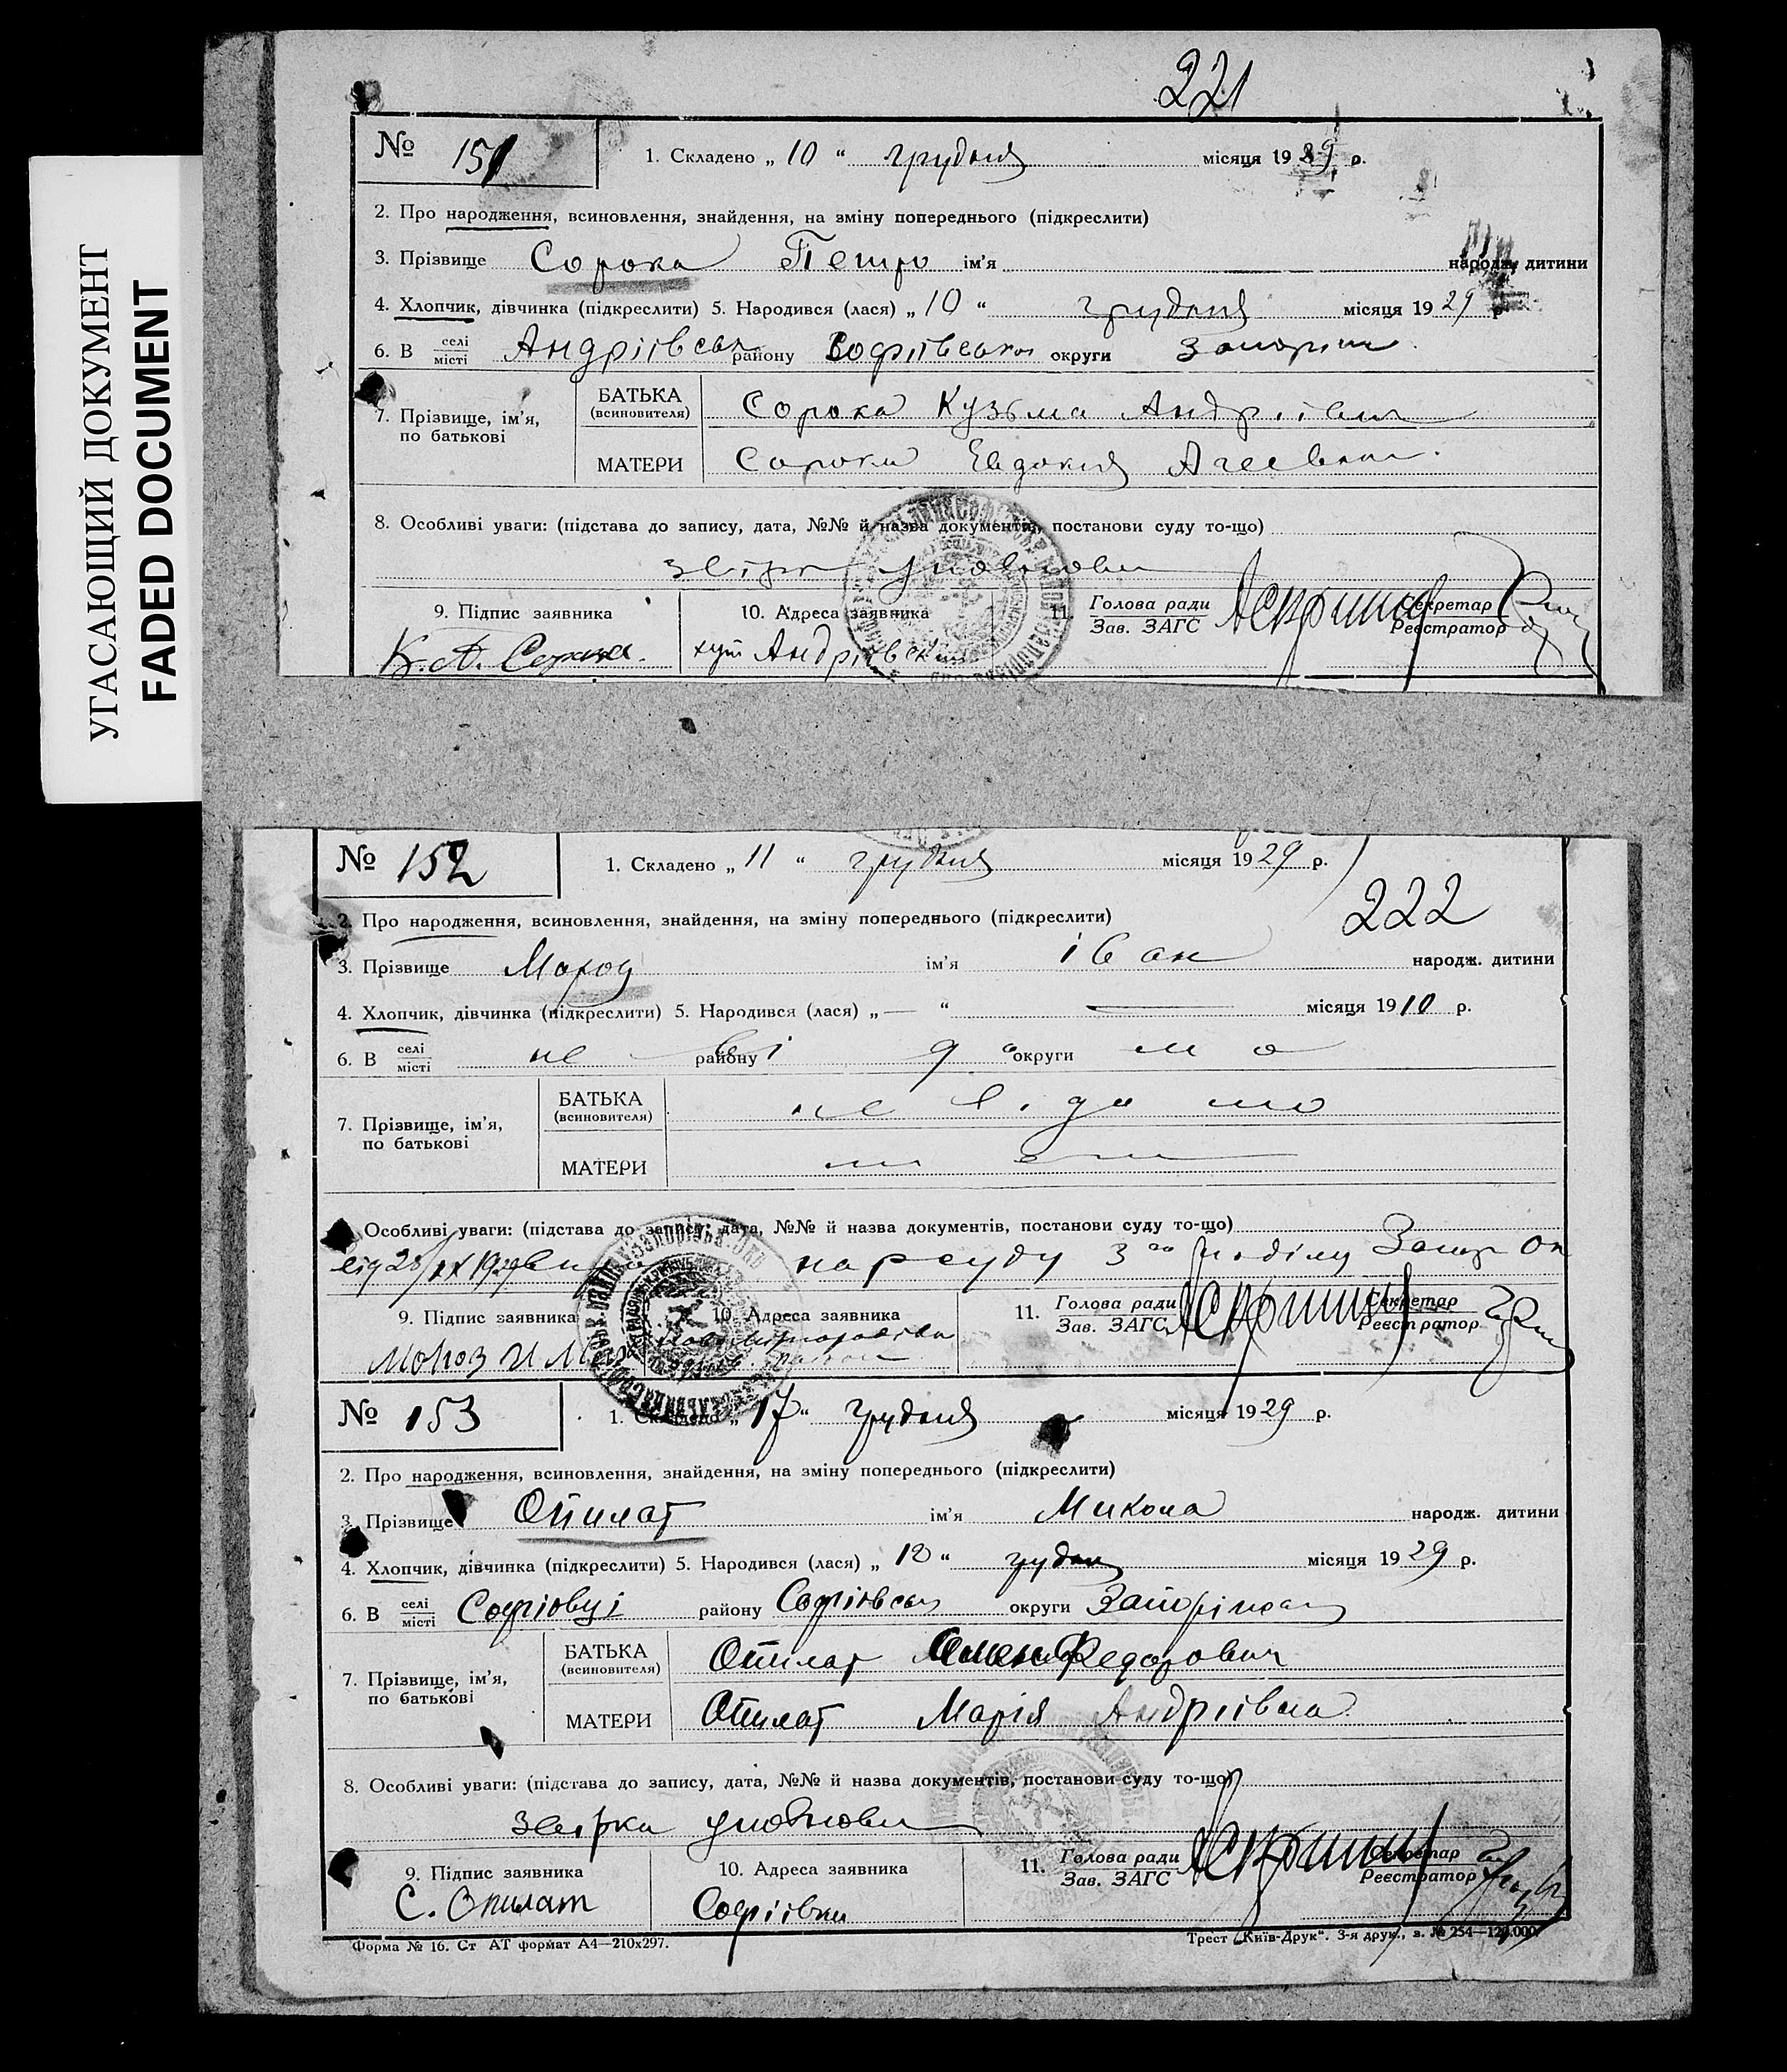 УГАСАЮЩИЙ ДОКУМЕНТ
FADED DOCUMENT
221
№ 151
1. Складено „ 10 “ грудня місяця 1929 р.
2. Про народження, всиновлення, знайдення, на зміну попереднього (підкреслити)
3. Прізвище Сорока Петро ім'я народж. дитини
4. Хлопчик, дівчинка (підкреслити) 5. Народився (лася) „ 10 “ грудня місяця 1929 р.
6. В селі/місті Андріївськ району Софіївськ округи Запоріж
7. Прізвище, ім'я, по батькові
БАТЬКА (всиновителя) Сорока Кузьма Андрієвич
МАТЕРИ Сорока Евдокия
8. Особливі уваги: (підстава до запису, дата, №№ й назва документів, постанови суду то-що)
9. Підпис заявника
10. Адреса заявника
11. Голова ради / Зав. ЗАГС
Секретар / Реєстратор
К. А. Сорока. хут Андріївськ
№ 152
1. Складено „ 11 “ грудня місяця 1929 р.
222
2. Про народження, всиновлення, знайдення, на зміну попереднього (підкреслити)
3. Прізвище Мороз ім'я Іван народж. дитини
4. Хлопчик, дівчинка (підкреслити) 5. Народився (лася) „ — “ — місяця 1910 р.
6. В селі/місті не району ві округи до мо
7. Прізвище, ім'я, по батькові
БАТЬКА (всиновителя) не відомо
МАТЕРИ
Особливі уваги: (підстава до запису, дата, №№ й назва документів, постанови суду то-що)
від 28/IX 1929 нарсуду 3го поділу Запор Ок
9. Підпис заявника
10. Адреса заявника
11. Голова ради / Зав. ЗАГС
Секретар / Реєстратор
Мороз И М
№ 153
1. Складено „ 17 “ грудня місяця 1929 р.
2. Про народження, всиновлення, знайдення, на зміну попереднього (підкреслити)
3. Прізвище Опилат ім'я Микола народж. дитини
4. Хлопчик, дівчинка (підкреслити) 5. Народився (лася) „ “ грудня місяця 1929 р.
6. В селі/місті Софіювці району Софіївськ округи Запоріжськ
7. Прізвище, ім'я, по батькові
БАТЬКА (всиновителя) Опилат Федорович
МАТЕРИ Опилат Марія Андріївна
8. Особливі уваги: (підстава до запису, дата, №№ й назва документів, постанови суду то-що)
9. Підпис заявника
10. Адреса заявника
11. Голова ради / Зав. ЗАГС
Секретар / Реєстратор
С. Опилат Софіївка
Форма № 16. Ст АТ формат А4—210x297.
Трест „Київ-Друк“. 3-я друк., з. № 254—120.000.